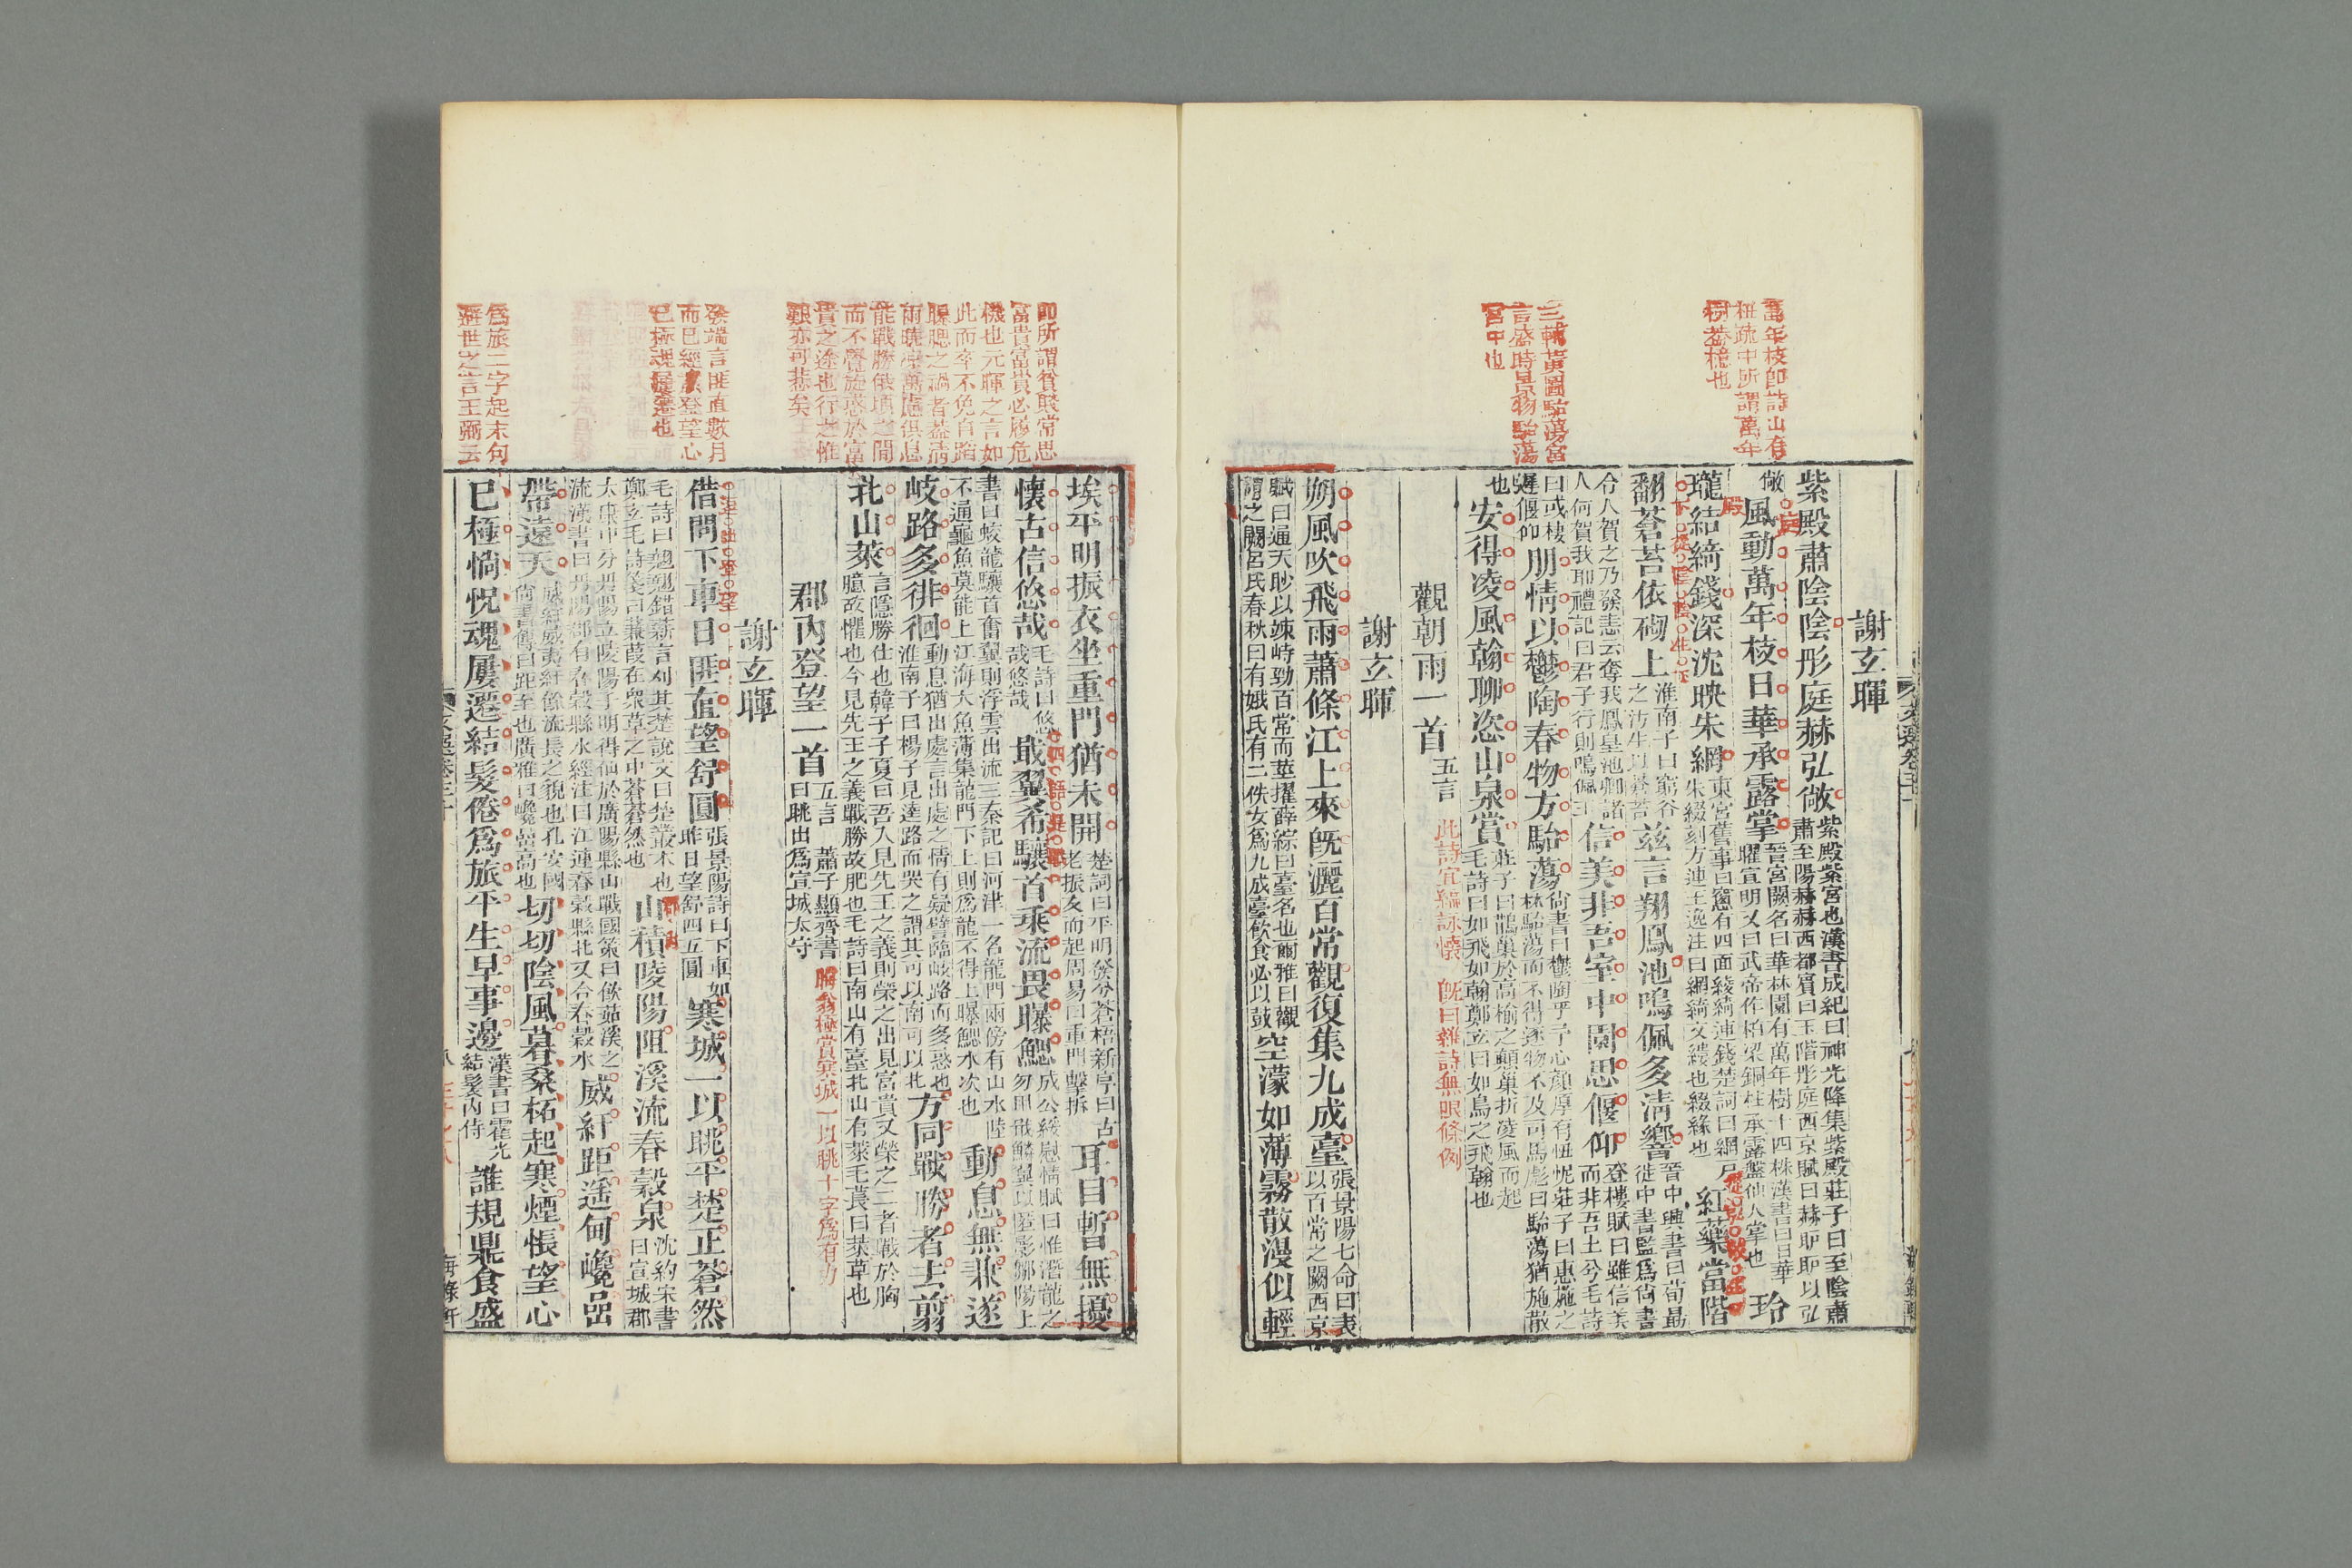 萬年枝即詩山有
杻疏中所謂萬年
樹葢檍也
三輔黃圖駘蕩宮
言盛時景物駘蕩
宮中也
謝玄暉
紫殿肅陰陰彤庭赫弘敞
紫殿紫宮也漢書成紀曰神光降集紫殿莊子曰至陰肅
肅至陽赫赫西都賓曰玉階彤庭西京賦曰赫昈昈以弘
敞
風動萬年枝日華承露掌
晉宮闕名曰華林園有萬年樹十四株漢書曰日華
曜宣明又曰武帝作栢梁銅柱承露盤仙人掌也
玲
瓏結綺錢深沈映朱網
東宮舊事曰窻有四面綾綺連錢楚詞曰網戶
朱綴刻方連王逸注曰網綺文縷也綴緣也
紅藥當階
翻蒼苔依砌上
淮南子曰窮谷
之汚生以蒼苔
茲言翔鳳池鳴佩多淸響
晉中興書曰荀勗
徙中書監爲尚書
令人賀之乃發恚云奪我鳳皇池卿諸
人何賀我耶禮記曰君子行則鳴佩玉
信美非吾室中園思偃仰
登樓賦曰雖信美
而非吾土兮毛詩
曰或棲
遲偃仰
朋情以鬱陶春物方駘蕩
尚書曰鬱陶乎予心顏厚有忸怩莊子曰惠施之
材駘蕩而不得逐物不及司馬彪曰駘蕩猶施散
也
安得凌風翰聊恣山泉賞
莊子曰鵲巢於高榆之顚巢折凌風而起
毛詩曰如飛如翰鄭玄曰如鳥之飛翰也
此詩宜編詠懷 旣曰雜詩無眠條例
觀朝雨一首
五言
謝玄暉
朔風吹飛雨蕭條江上來旣灑百常觀復集九成臺
張景陽七命曰表
以百常之闕西京
賦曰通天眇以竦峙勁百常而莖擢薛綜曰臺名也爾雅曰觀
謂之闕呂氏春秋曰有娀氏有二佚女爲九成臺飲食必以鼓
空濛如薄霧散漫似輕
即所謂貧賤常思
富貴富貴必履危
機也元暉之言如
此而卒不免自蹈
而不覺旋惑於富
貴之途也行之惟
艱亦可悲矣
發端言匪直數月
而已經登望心
已極魂屢遷也
爲旅二字起末句
避世之言王弼云
埃平明振衣坐重門猶未開
楚詞曰平明發兮蒼梧新序曰古
老振衣而起周易曰重門擊拆
耳目暫無擾
懷古信悠哉
毛詩曰悠
哉悠哉
戢翼希驤首乘流畏曝鰓
成公綏慰情賦曰惟潛龍之
勿用戢鱗翼以匿影鄒陽上
書曰蛟龍驤首奮翼則浮雲出流三秦記曰河津一名龍門兩傍有山水陸
不通龜魚莫能上江海大魚薄集龍門下上則爲龍不得上曝鰓水次也
動息無兼遂
岐路多徘徊
動息猶出處言出處之情有疑譬臨岐路而多惑也
淮南子曰楊子見逵路而哭之謂其可以南可以北
方同戰勝者去翦
北山萊
言隱勝仕也韓子子夏曰吾入見先王之義則榮之出見富貴又榮之二者戰於胸
臆故懼也今見先王之義戰勝故肥也毛詩曰南山有臺北山有萊毛萇曰萊草也
郡內登望一首
五言 蕭子顯齊書
曰眺出爲宣城太守
晦翁極賞寒城一以眺十字爲有功
謝玄暉
借問下車日匪直望舒圓
張景陽詩曰下車如
昨日望舒四五圓
寒城一以眺平楚正蒼然
毛詩曰翹翹錯薪言刈其楚說文曰楚叢木也
鄭玄毛詩箋曰蒹葭在衆草之中蒼蒼然也
山積陵陽阻溪流春穀泉
沈約宋書
曰宣城郡
太康中分丹陽立陵陽子明得仙於廣陽縣山戰國策曰飲茹溪之
流漢書曰丹陽郡有春穀縣水經注曰江連春穀縣北又合春穀水
威紆距遥甸巉喦
帶遠天
威紆威夷紆餘流長之貌也孔安國
尚書傳曰距至也廣雅曰巉喦高也
切切陰風暮桑柘起寒煙悵望心
已極惝怳魂屢遷結髮倦爲旅平生早事邊
漢書曰霍光
結髮內侍
誰規鼎食盛